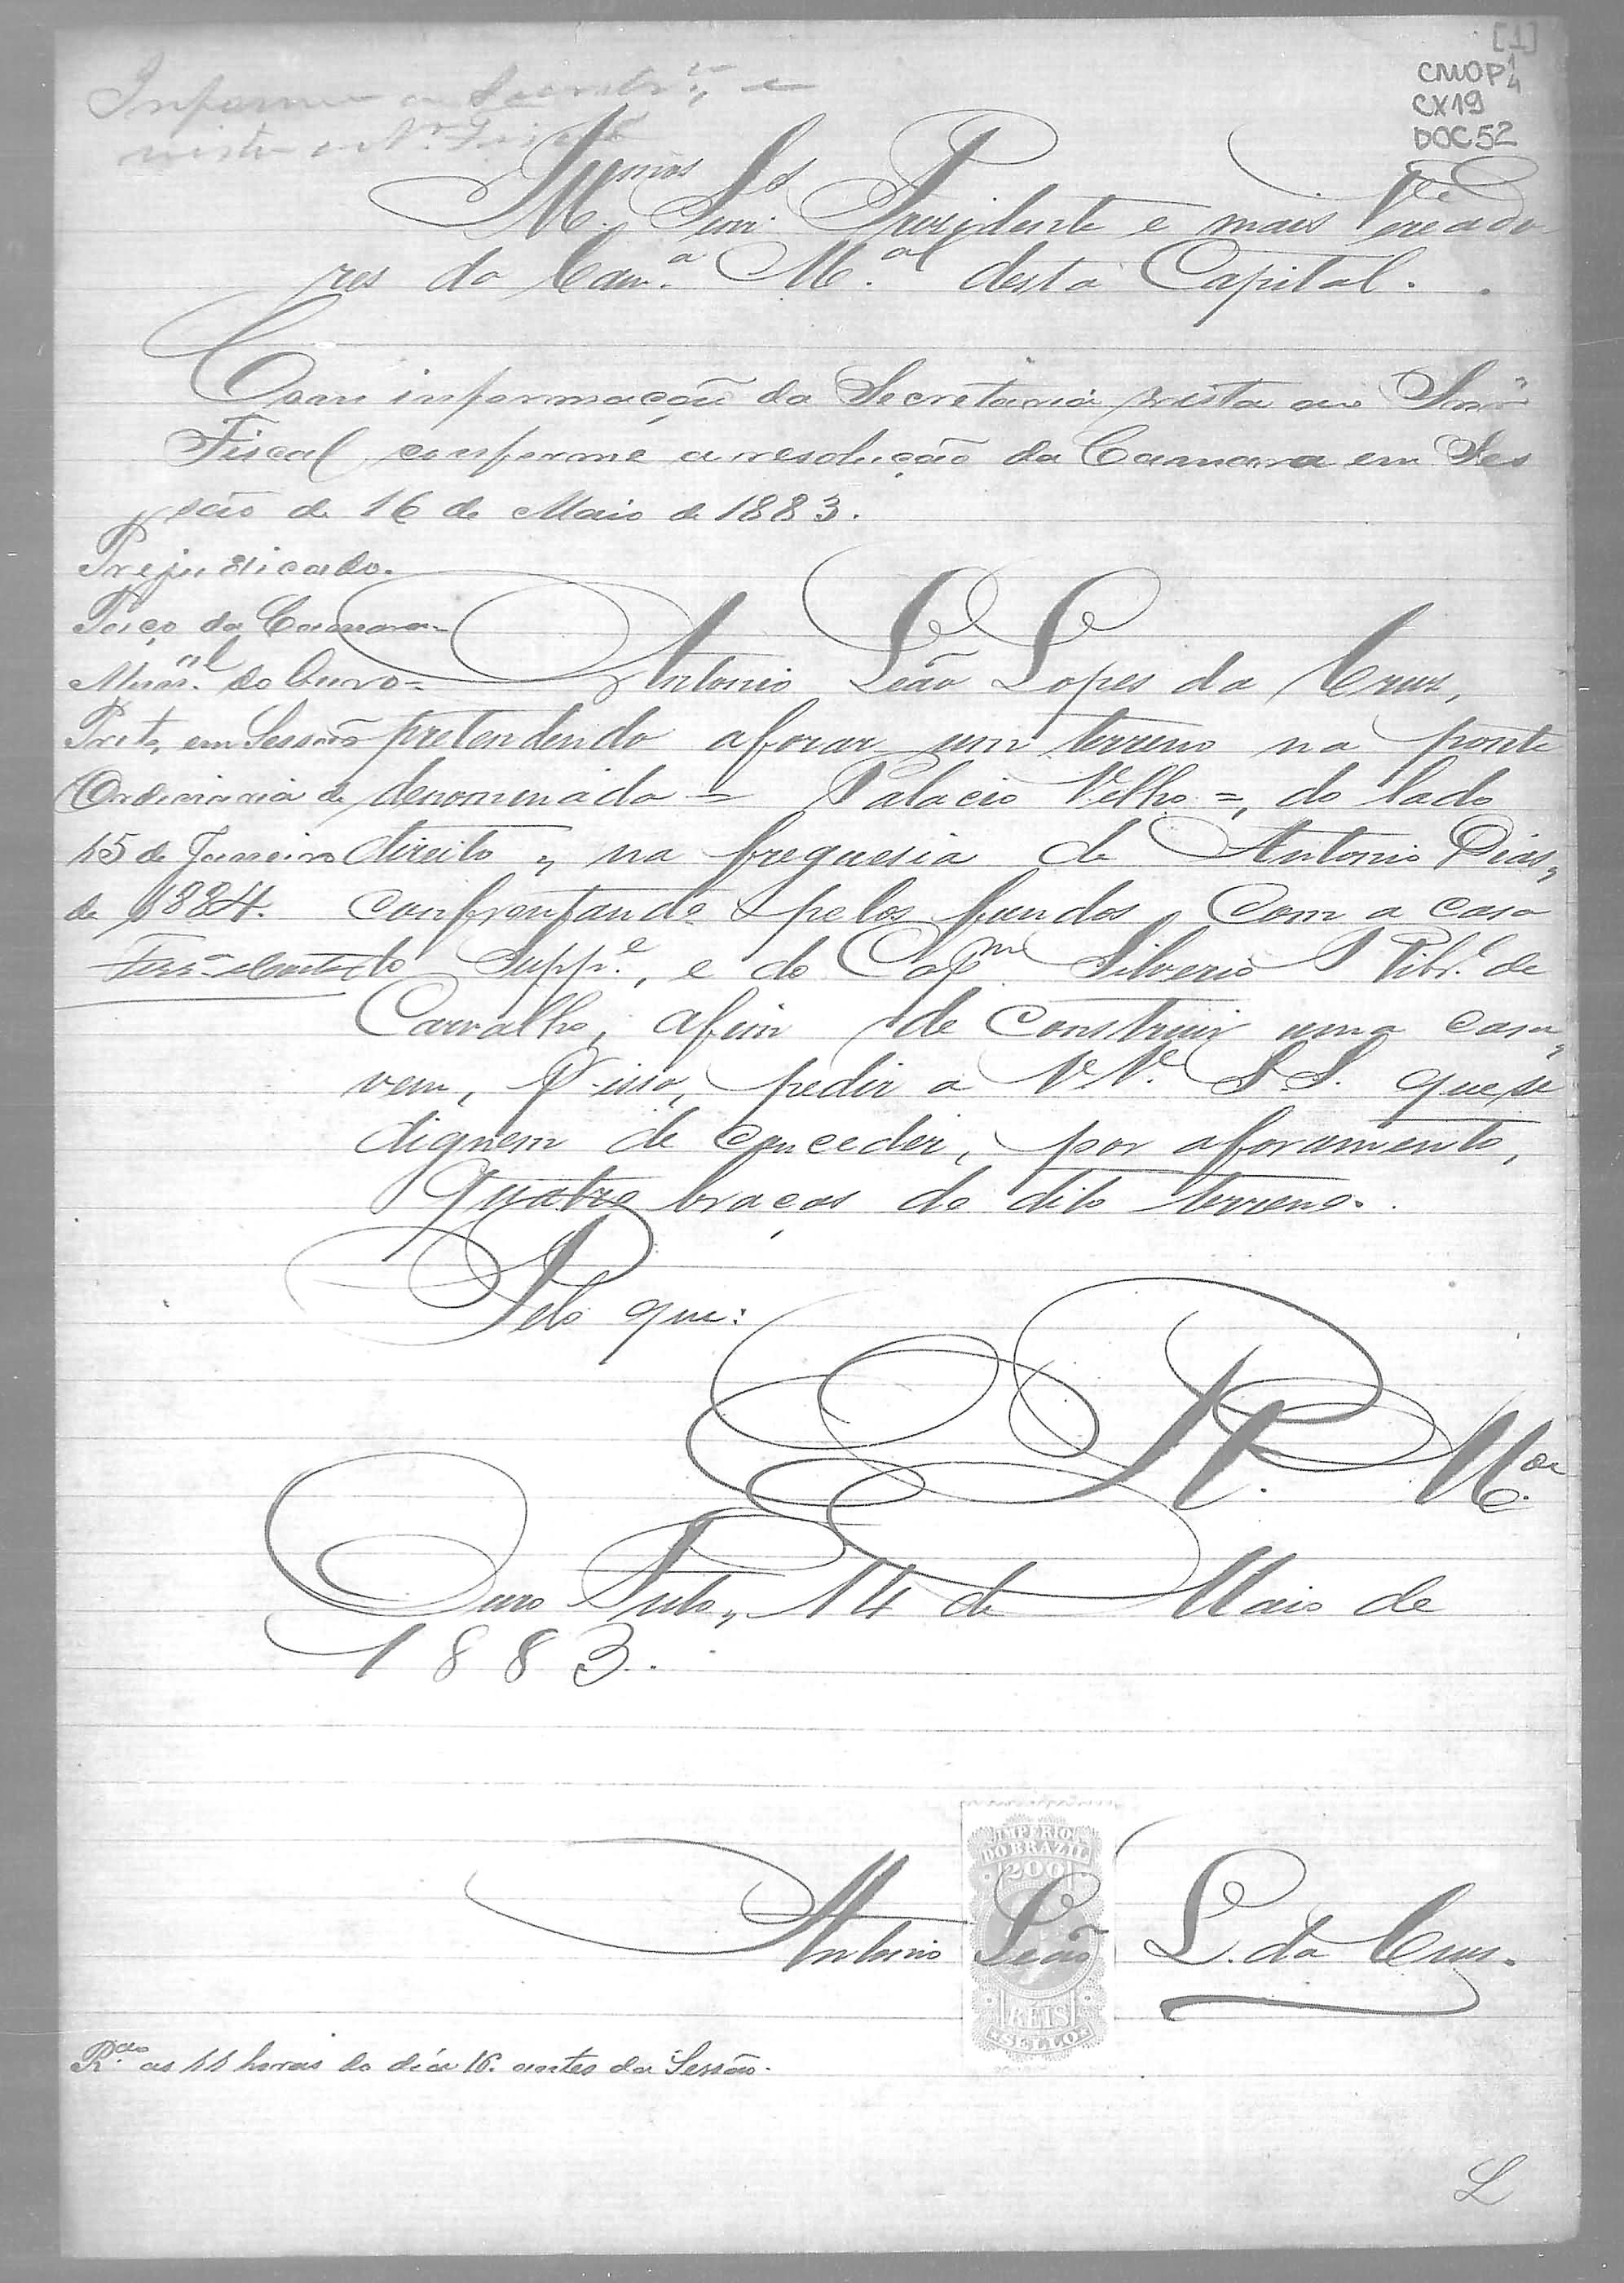 [1]
CMOP 1/4
CX19
DOC 52
Informe a Secretr.ª, e
vista ao Sr. Fiscal
M.mos Snrs. Presidente e mais Vereado
res da Cam.ª M.al desta Capital.
Com informação da Secretaria vista ao Snr
Fiscal, conforme a resolução da Camara em Ses
são de 16 de Maio de 1883.
Prejudicado.
Paço da Camara
Mun.al do Ouro-
Preto, em Sessão
Ordinaria de
15 de Janeiro
de 1884.
Antonio Leão Lopes da Cruz,
pretendendo aforar um terreno na ponte
denominada = Palacio Velho =, do lado
direito, na freguesia de Antonio Dias,
confrontando pelos fundos com a casa
do Supp.e, e do Cap.m Silverio Rib.º de
Carvalho, afim de construir uma casa,
vem, P. isso, pedir a VV. SS. que se
dignem de conceder, por aforamento,
quatro braças do dito terreno.
Pelo que:
E. R. M.ce
Ouro Preto, 14 de Maio de
1883.
IMPERIO
DO BRAZIL
200
RÉIS
SELLO
Antonio Leão L. da Cruz.
R.do as 11 horas do dia 16. antes da Sessão.
L